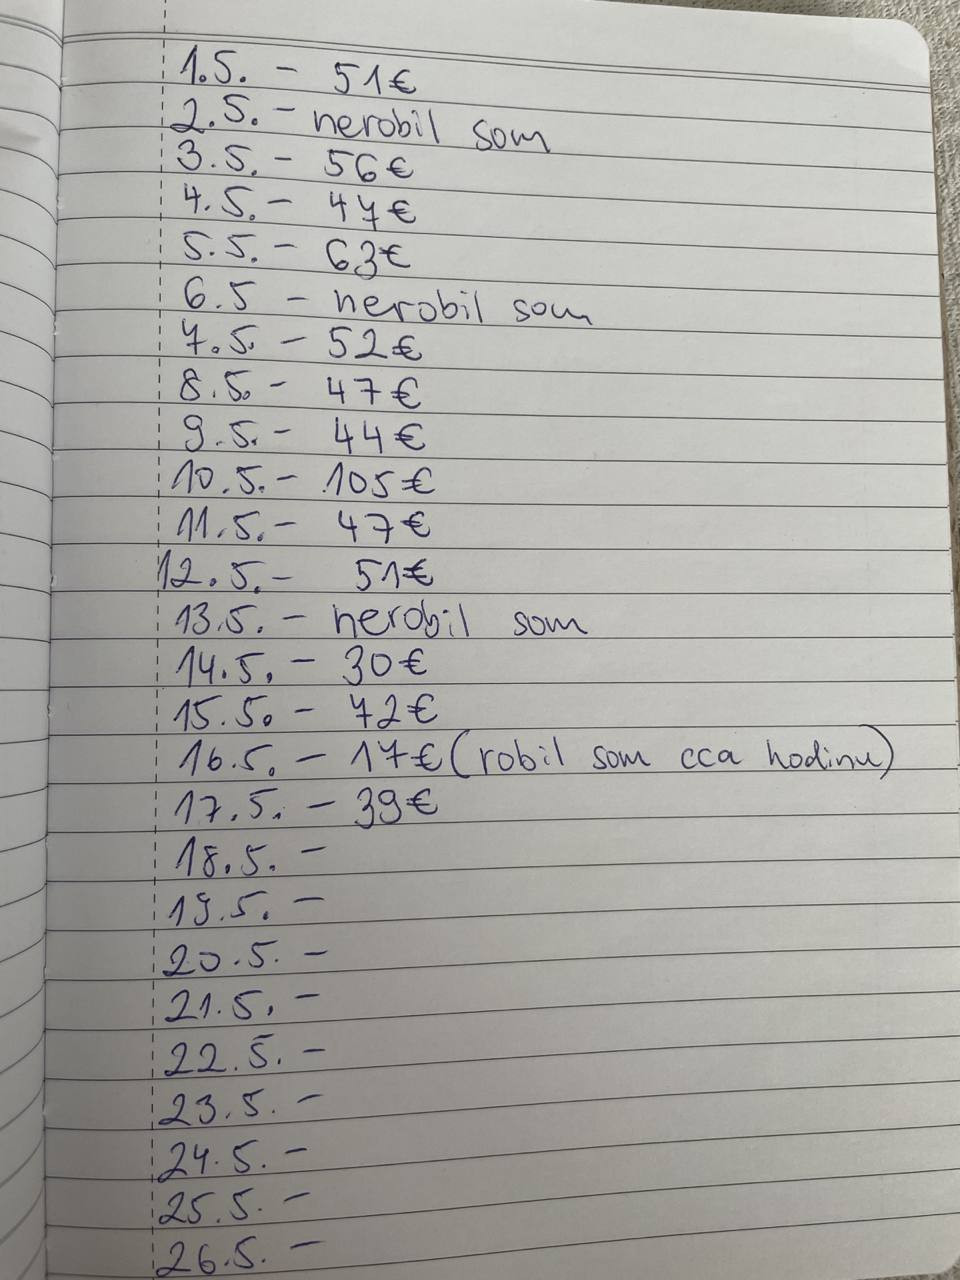 1.5. - 51€
2.5. - nerobil som
3.5. - 56€
4.5. - 47€
5.5. - 63€
6.5 - nerobil som
7.5. - 52€
8.5. - 47€
9.5. - 44€
10.5. - 105€
11.5. - 47€
12.5. - 51€
13.5. - nerobil som
14.5. - 30€
15.5. - 72€
16.5. - 17€ (robil som cca hodinu)
17.5. - 39€
18.5. -
19.5. -
20.5. -
21.5. -
22.5. -
23.5. -
24.5. -
25.5. -
26.5. -